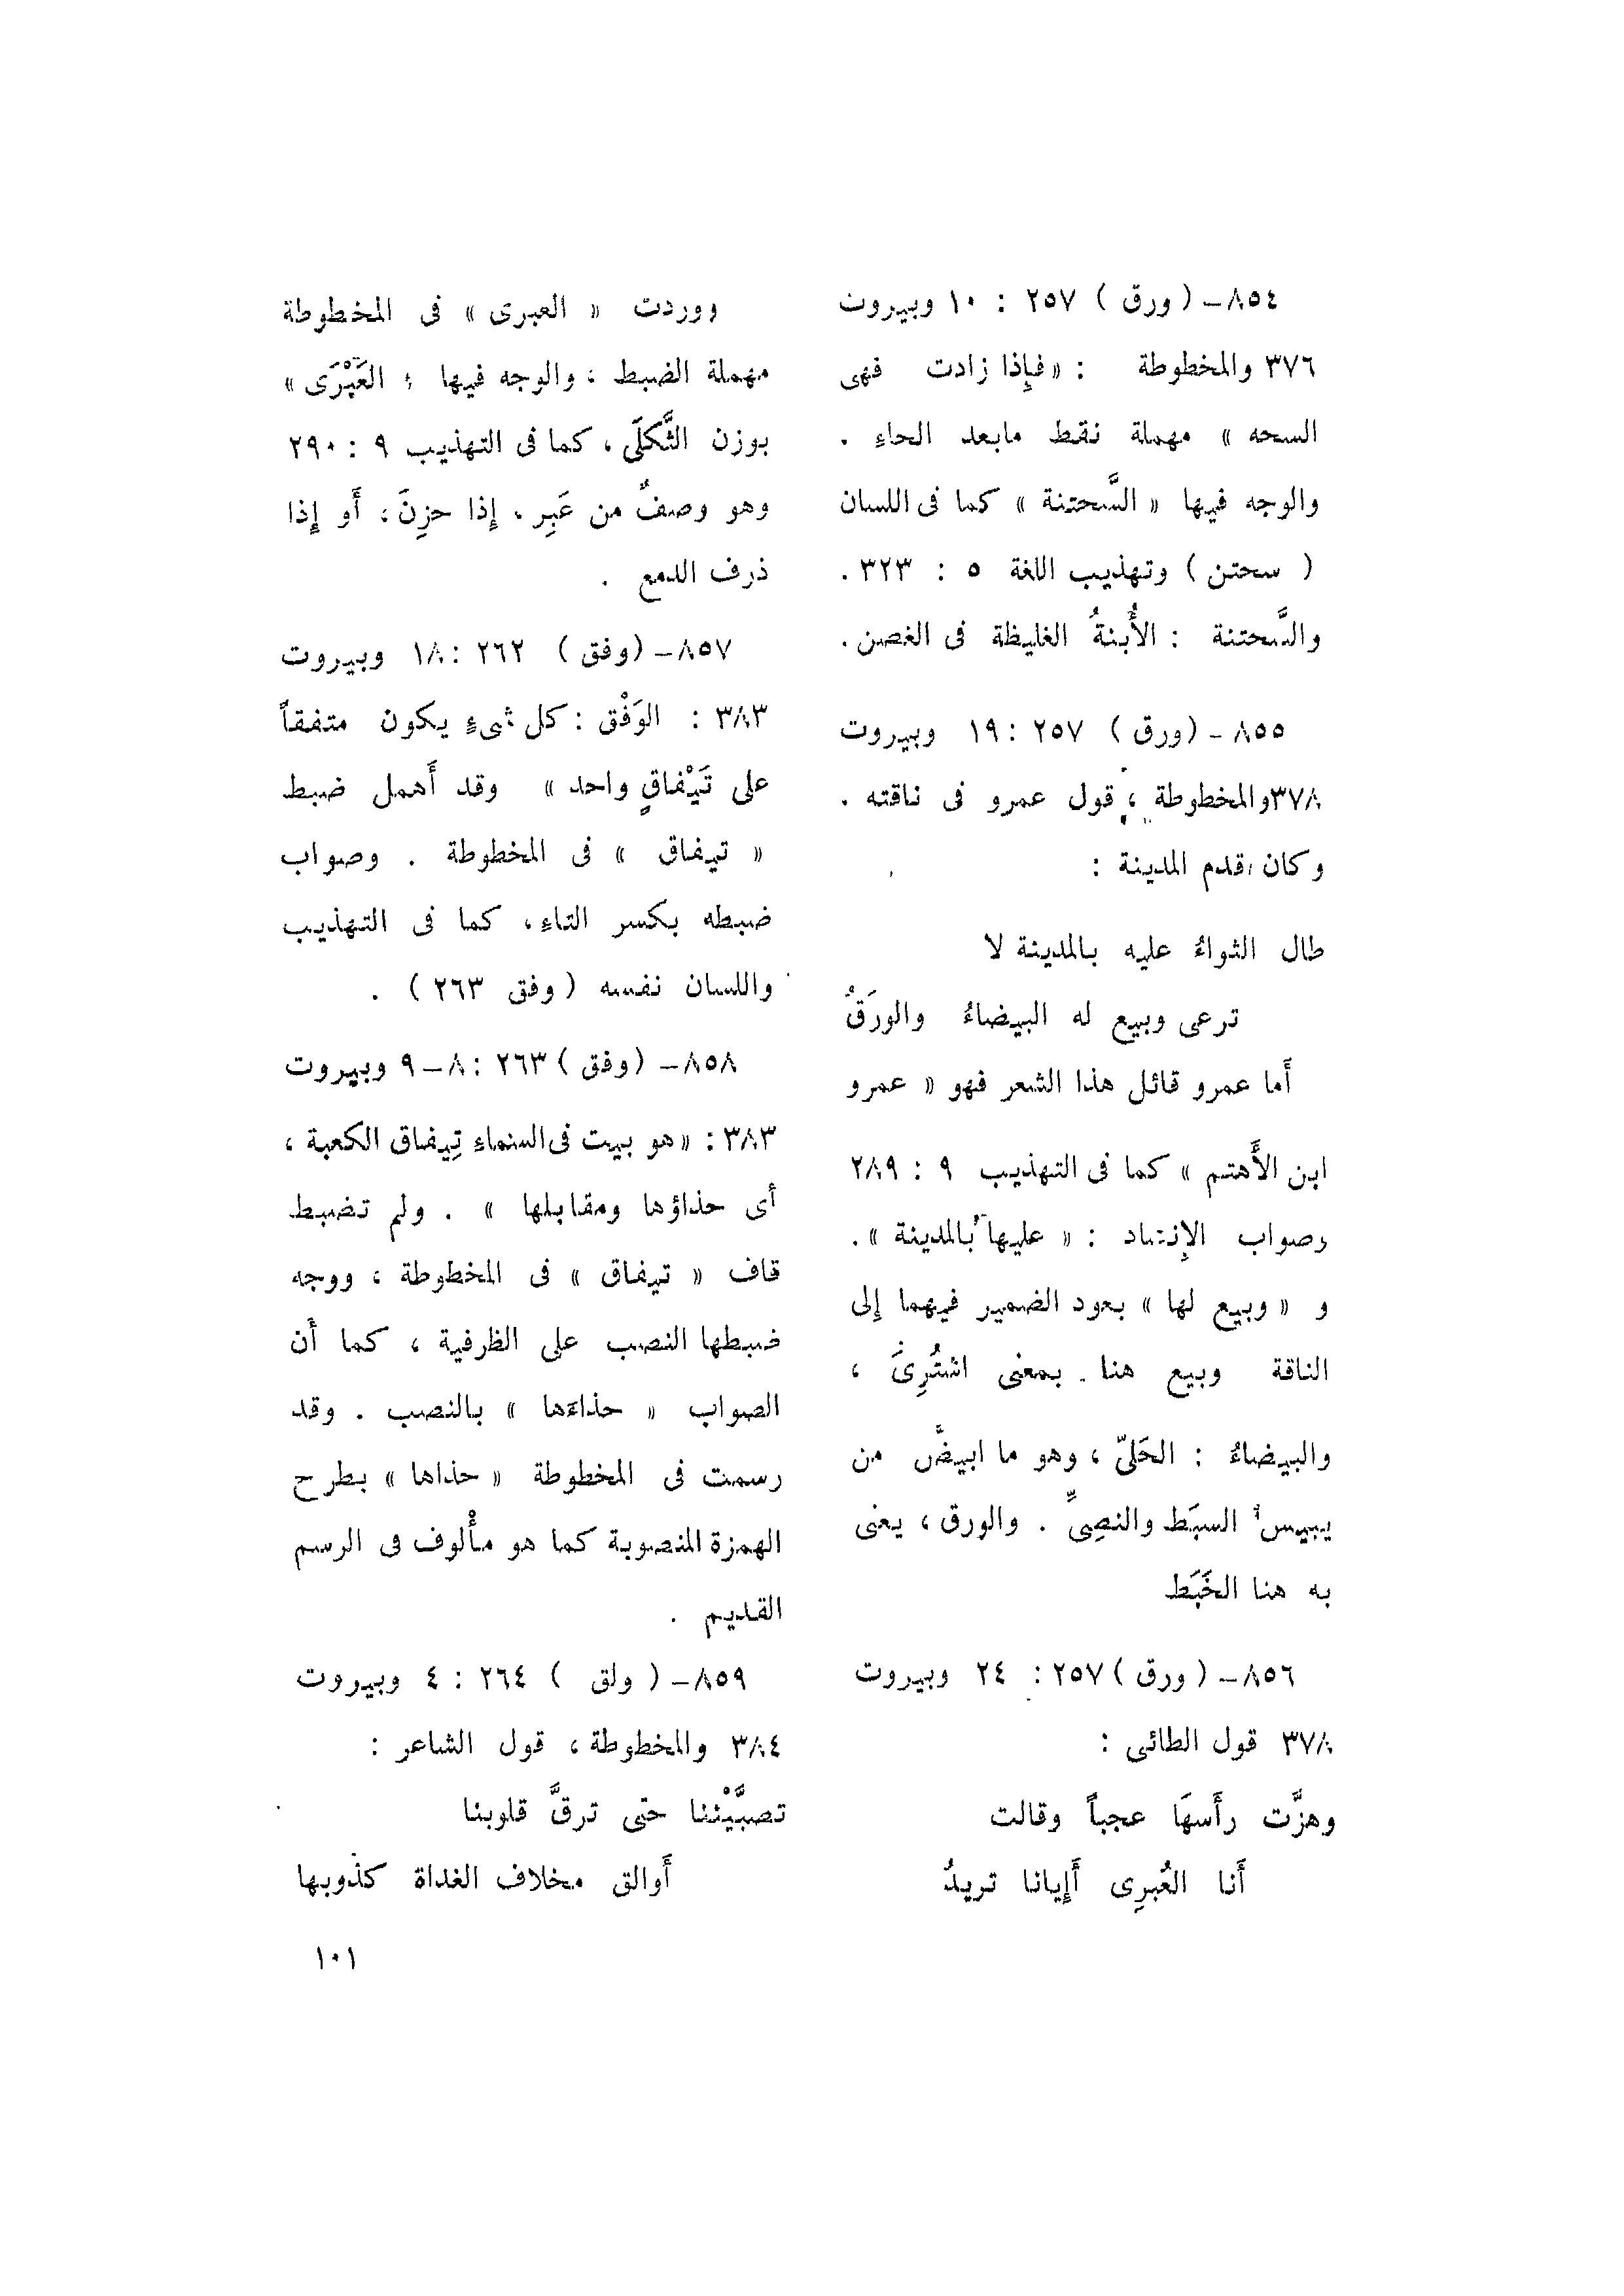 ٨٥٤- ( ورق ) ٢٥٧ : ١٠ وبيروت
٣٧٦ والمخطوطة : « فإِذا زادت فهى
السحه » مهملة نقط مابعد الحاءِ .
والوجه فيها « السَّحتنة » كما فى اللسان
( سحتن ) وتهذيب اللغة ٥ : ٣٢٣ .
والسَّحتنة : الأُبنةُ الغليظة فى الغصن .
٨٥٥ - ( ورق ) ٢٥٧ : ١٩ وبيروت
٣٧٨ والمخطوطة ، قول عمرو فى ناقته .
وكان قدم المدينة :
طال الثواءُ عليه بالمدينة لا
ترعى وبيع له البيضاءُ والورَقُ
أَما عمرو قائل هذا الشعر فهو « عمرو
ابن الأَهتم » كما فى التهذيب ٩ : ٢٨٩
وصواب الإِنشاد : « عليها بالمدينة » .
و « وبيع لها » بعود الضمير فيهما إلى
الناقة وبيع هنا . بمعنى اشتُرِىَ ،
والبيضاءُ : الحَلىّ ، وهو ما ابيضَّ من
يبيس السبَط والنصِىِّ . والورق ، يعنى
به هنا الخَبَط
٨٥٦- ( ورق ) ٢٥٧ : ٢٤ وبيروت
٣٧٨ قول الطائى :
وهزَّت رأَسهَا عجباً وقالت
أَنا العُبرِى أَإِيانا تريدُ
ووردت « العبرى » فى المخطوطة
مهملة الضبط ، والوجه فيها : العَبْرَى »
بوزن الثَّكلَى ، كما فى التهذيب ٩ : ٢٩٠
وهو وصفٌ من عَبِر ، إِذا حزِنَ ، أَو إِذا
ذرف الدمع .
٨٥٧- ( وفق ) ٢٦٢ : ١٨ وبيروت
٣٨٣ : الوَفْق : كل شىءٍ يكون متفقاً
على تَيْفاقٍ واحد » وقد أَهمل ضبط
« تيفاق » فى المخطوطة . وصواب
ضبطه بكسر التاءِ ، كما فى التهذيب
واللسان نفسه ( وفق ٢٦٣ ) .
٨٥٨- ( وفق ) ٢٦٣ : ٨-٩ وبيروت
٣٨٣ : « هو بيت فى السماءِ تِيفاق الكعبة ،
أى حذاؤها ومقابلها » . ولم تضبط
قاف « تيفاق » فى المخطوطة ، ووجه
ضبطها النصب على الظرفية ، كما أَن
الصواب « حذاءَها » بالنصب . وقد
رسمت فى المخطوطة « حذاها » بطرح
الهمزة المنصوبة كما هو مأْلوف فى الرسم
القديم .
٨٥٩- ( ولق ) ٢٦٤ : ٤ وبيروت
٣٨٤ والمخطوطة ، قول الشاعر :
تصبَّيْننا حتى ترقَّ قلوبنا
أَوالق مخلاف الغداة كذوبها
١٠١